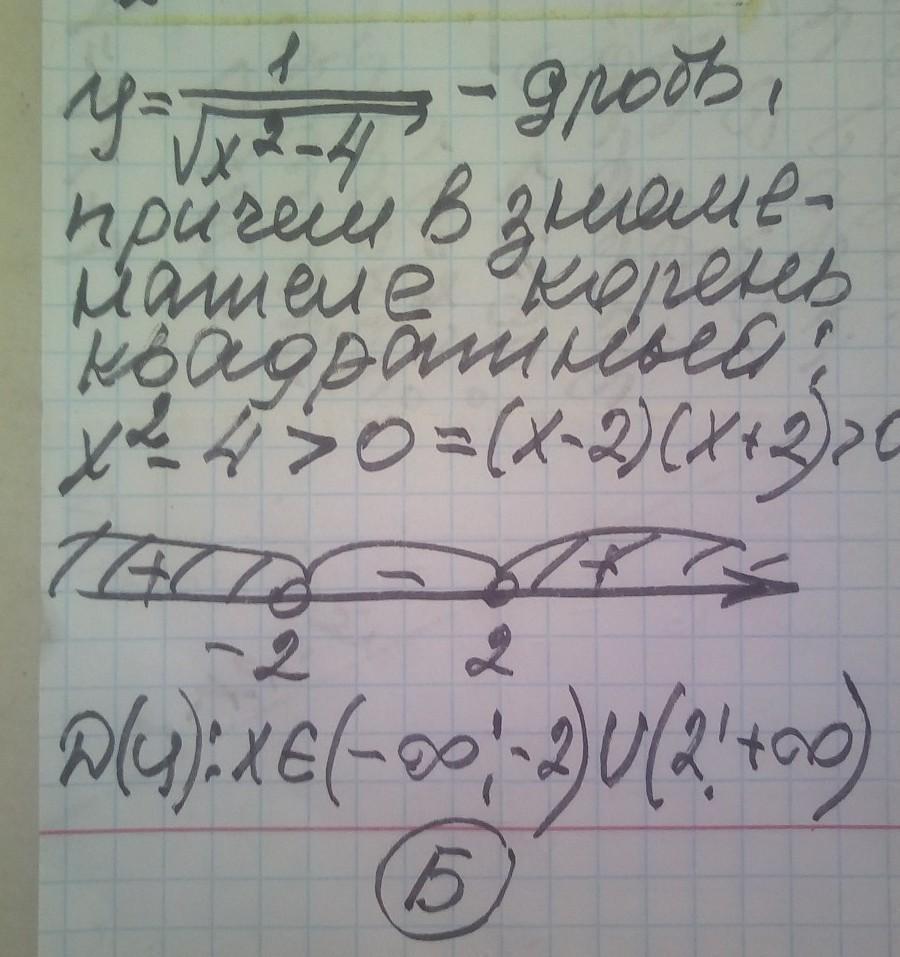 y = 1/√(x² - 4) - дробь,
причем в знаме-
нателе корень
квадратный:
x² - 4 > 0 = (x - 2)(x + 2) > 0
+ - +
-2 2
D(y): x ∈ (-∞; -2) U (2; +∞)
Б